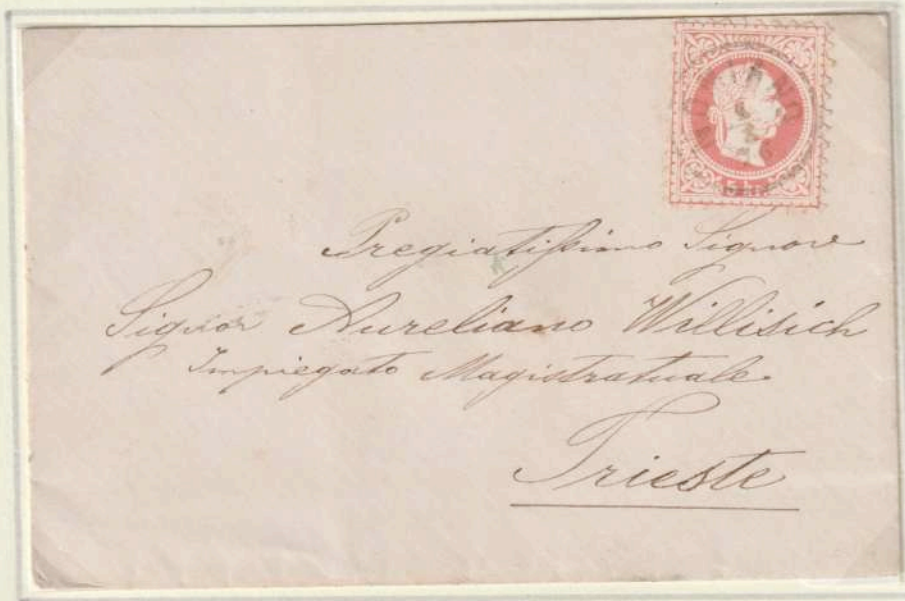 Pregiatissimo Signore
Signor Aureliano Willisich
Impiegato Magistratuale
Trieste